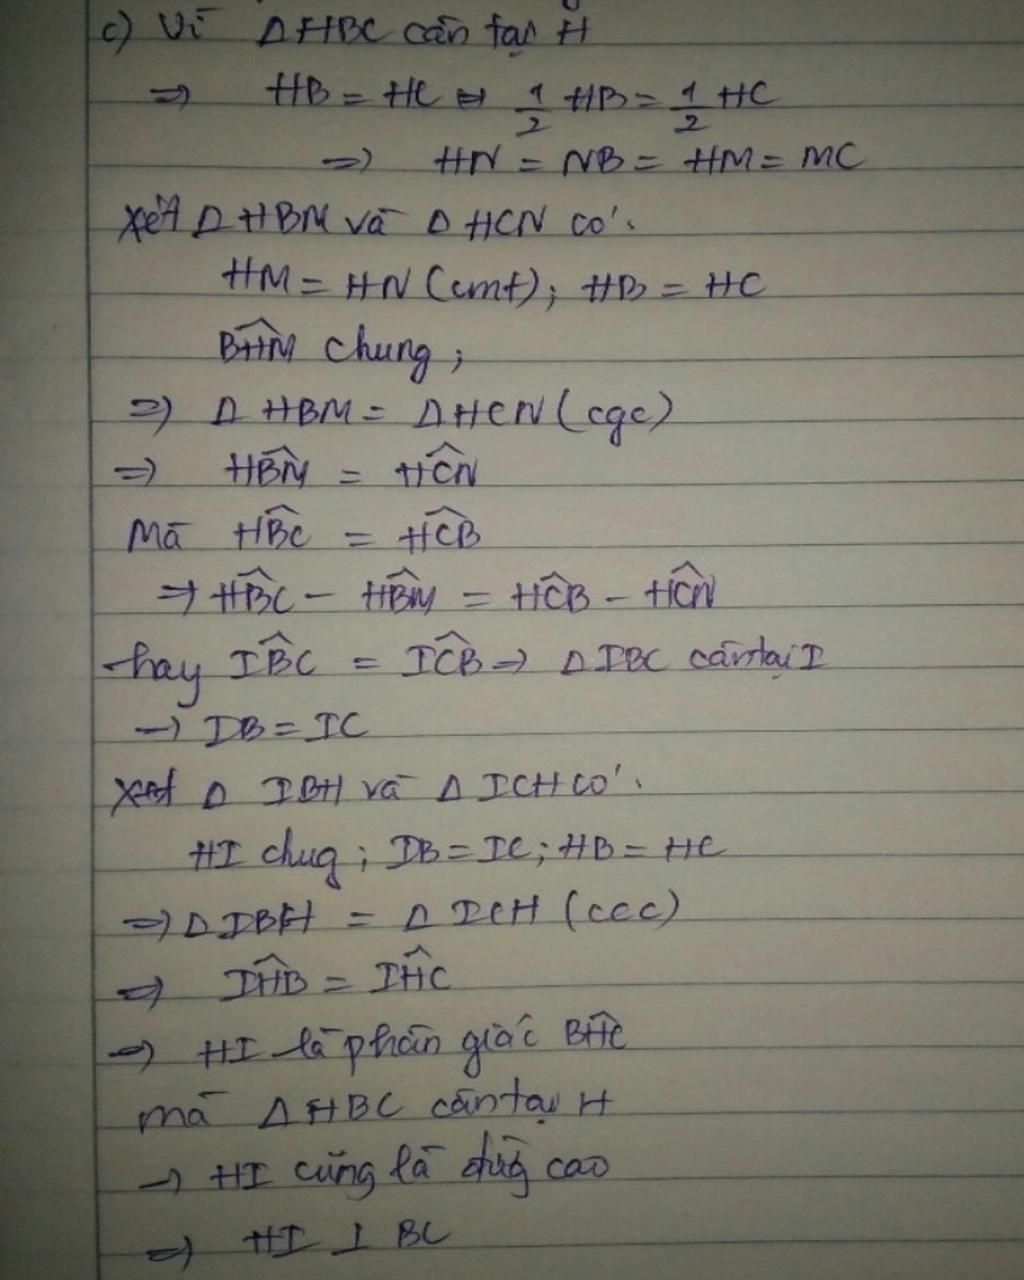 c) Vì ΔHBC cân tại H
=> HB = HC => 1/2 HB = 1/2 HC
=> HN = NB = HM = MC
Xét Δ HBM và Δ HCN có:
HM = HN (cmt); HB = HC
BHM chung;
=> Δ HBM = Δ HCN (cgc)
=> HBM = HCN
Mà HBC = HCB
=> HBC - HBM = HCB - HCN
hay IBC = ICB => Δ IBC cân tại I
-> IB = IC
Xét Δ IBH và Δ ICH có:
HI chug; IB = IC; HB = HC
=> Δ IBH = Δ ICH (ccc)
=> IHB = IHC
=> HI là phân giác BHC
mà Δ HBC cân tại H
-> HI cũng là đường cao
=> HI ⊥ BC